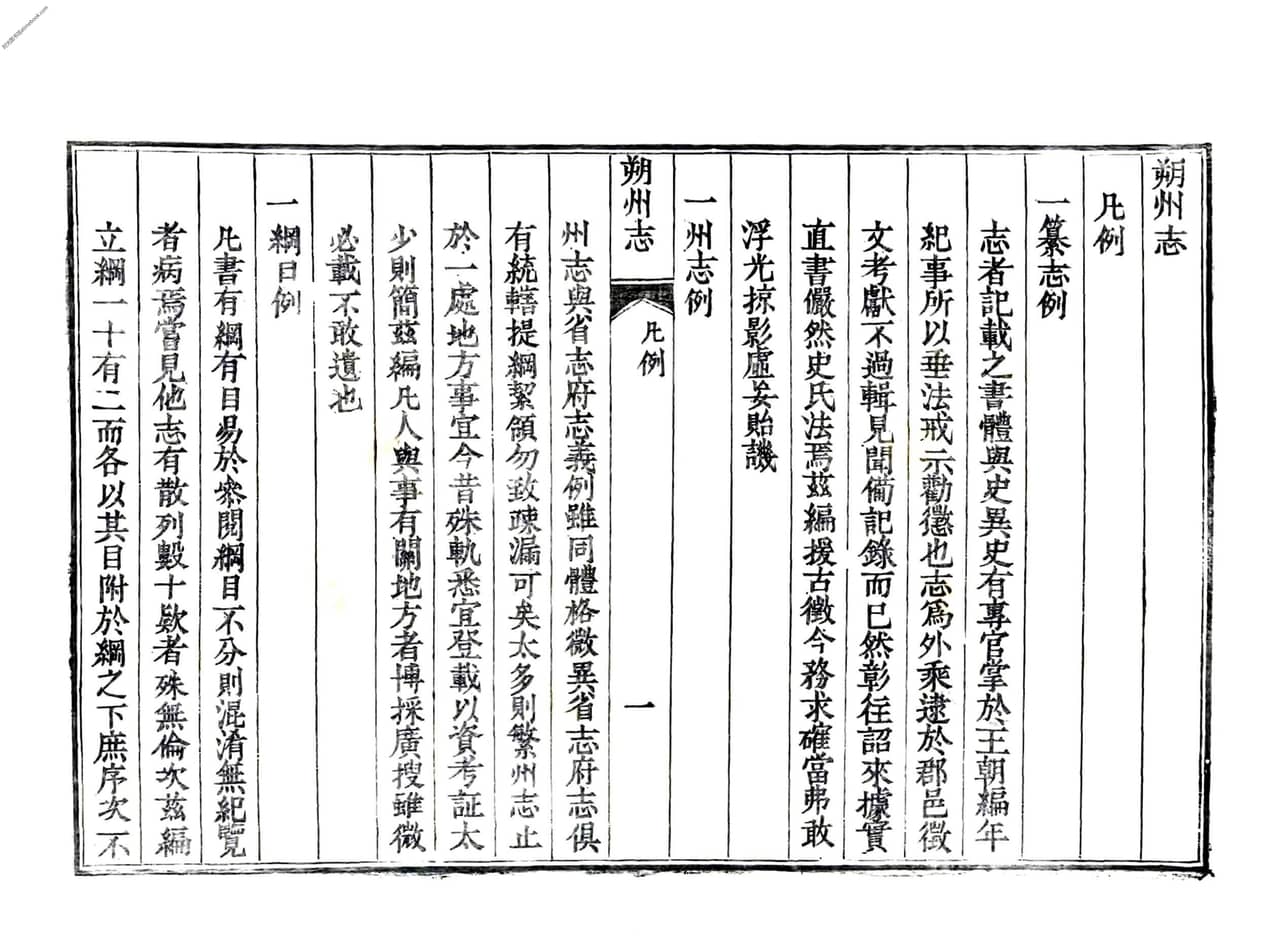 朔州志
凡例
一纂志例
志者記載之書體與史異史有專官掌於王朝編年
紀事所以垂法戒示勸懲也志爲外乘逮於郡邑徵
文考獻不過輯見聞備記錄而已然彰往詔來據實
直書儼然史氏法焉茲編援古徵今務求確當弗敢
浮光掠影虛妄貽譏
一州志例
朔州志
凡例
一
州志與省志府志義例雖同體格微異省志府志俱
有統轄提綱絜領勿致疎漏可矣太多則繁州志止
於一處地方事宜今昔殊軌悉宜登載以資考証太
少則簡茲編凡人與事有關地方者博採廣搜雖微
必載不敢遺也
一綱目例
凡書有綱有目易於叅閱綱目不分則混淆無紀覽
者病焉嘗見他志有散列數十欵者殊無倫次茲編
立綱一十有二而各以其目附於綱之下庶序次不